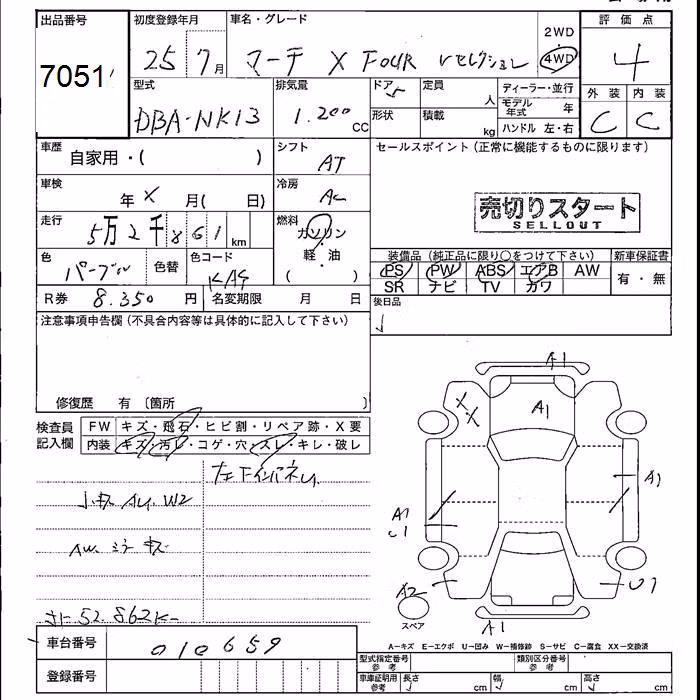 出品番号
7051
初度登録年月
25 7月
車名・グレード
マーチ X FOUR Vセレクション
2WD
4WD
評価点
4
型式
DBA-NK13
排気量
1.200 CC
ドア 5
定員 人
形状
積載 kg
ディーラー・並行
モデル年式 年
ハンドル 左・右
外装 内装
C C
車歴
自家用・( )
シフト
AT
セールスポイント(正常に機能するものに限ります)
車検
年 X 月( 日)
冷房
AC
売切りスタート
SELLOUT
走行
5万2千861 km
燃料
ガソリン
・
軽・油
( )
色
パープル
色替
色コード
装備品(純正品に限り○をつけて下さい)
新車保証書
PS PW ABS エアB AW
SR ナビ TV カワ
有・無
R券 8.350円
名変期限 月 日
後日品
注意事項申告欄(不具合内容等は具体的に記入して下さい)
修復歴 有〔箇所 〕
検査員記入欄
FW キズ・飛石・ヒビ割・リペア跡・X要
内装 キズ・汚レ・コゲ・穴・スレ・キレ・破レ
小キズ AU. W2
52.862K
車台番号
010659
登録番号
A1
A1
XX
A1
A1
U1
A2
U1
A1
スペア
A-キズ E-エクボ U-凹み W-補修跡 S-サビ C-腐食 XX-交換済
型式指定番号 参考
類別区分番号 参考
車庫証明用 参考
長さ cm
幅 cm
高さ cm